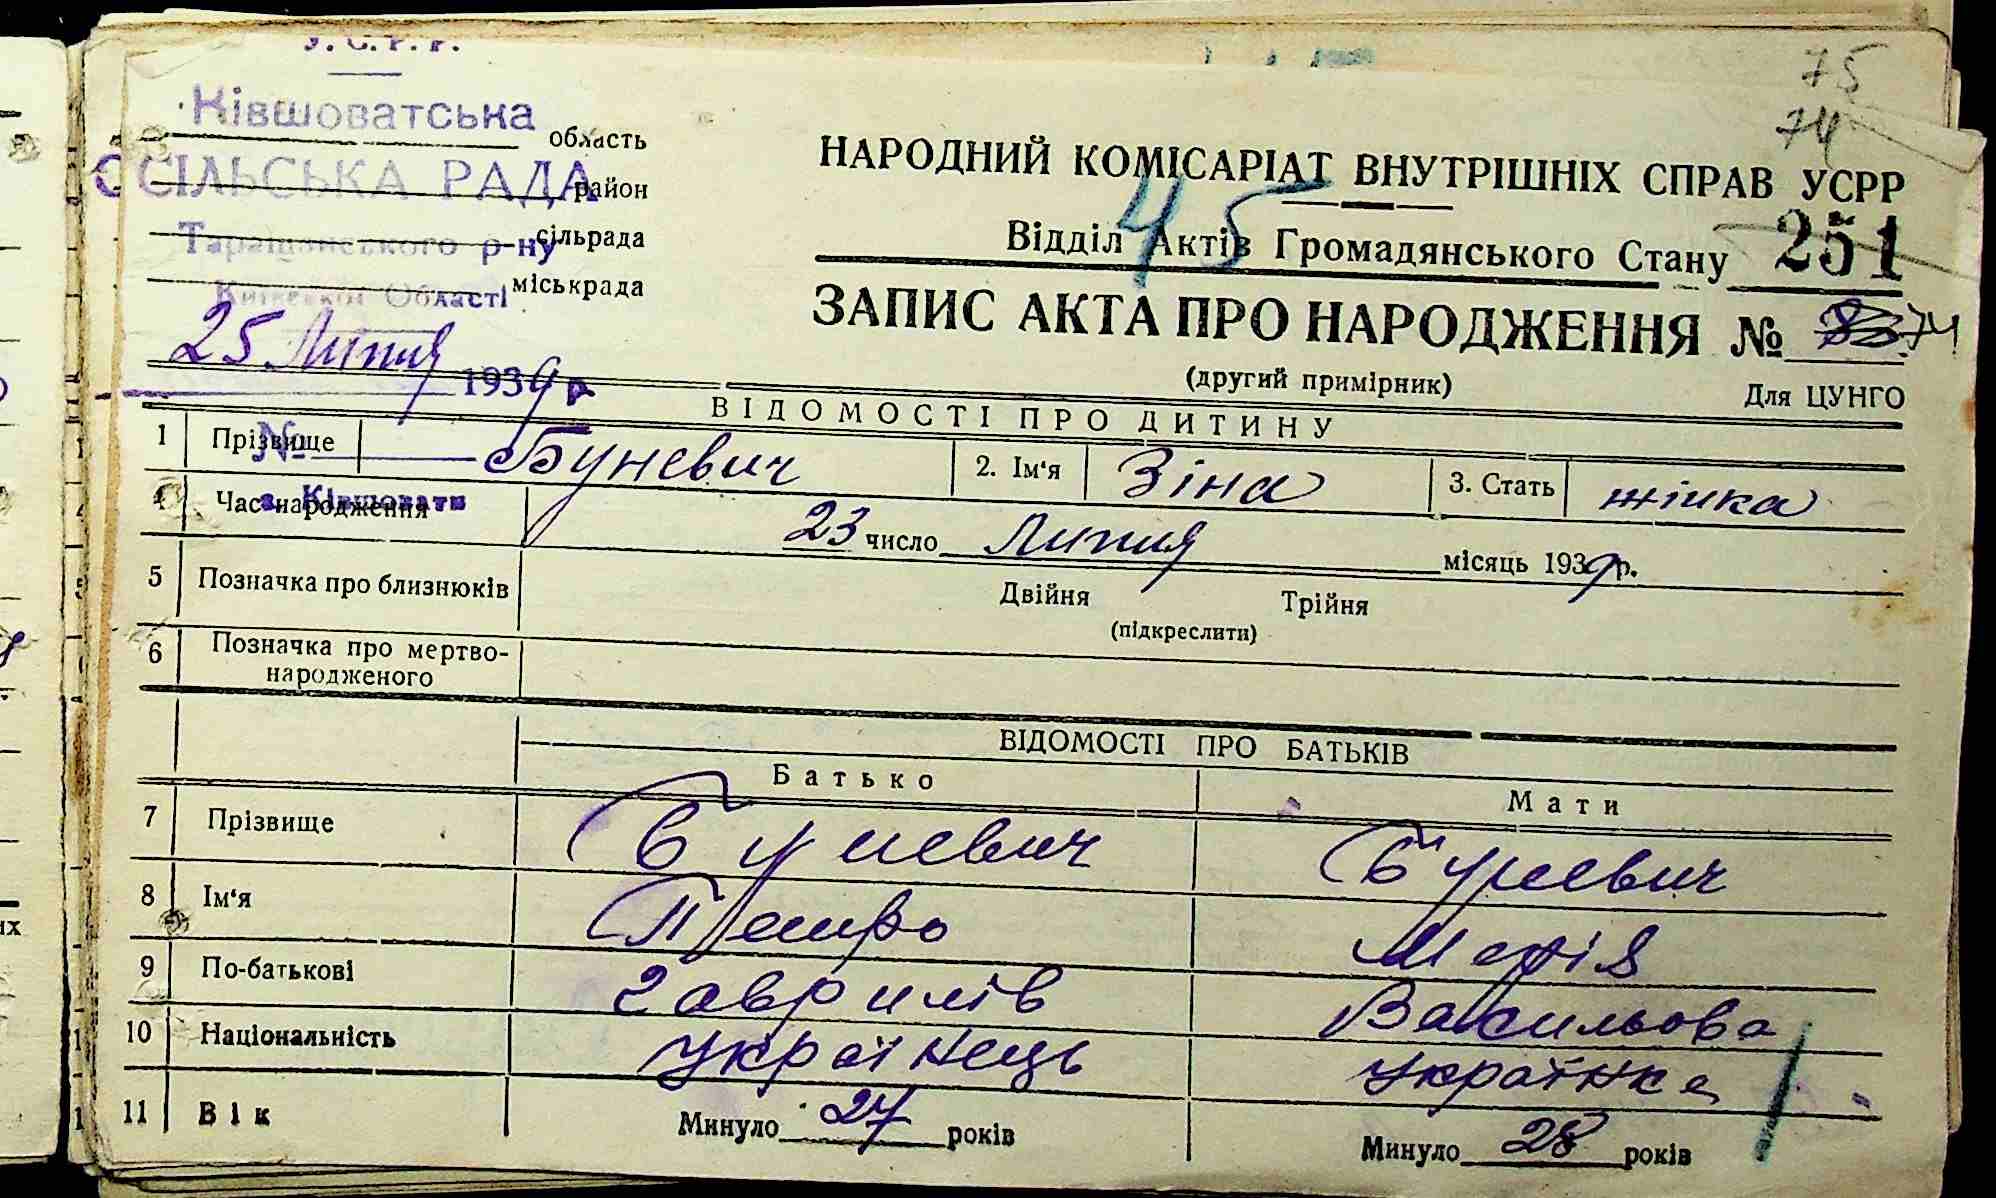 У. С. Р. Р.
Ківшоватська
область
СІЛЬСЬКА РАДА
район
Таращанського р-ну
сільрада
Київської Області
міськрада
25 Липня 1939 р.
№
с. Ківшовати
75
74
НАРОДНИЙ КОМІСАРІАТ ВНУТРІШНІХ СПРАВ УСРР
45
Відділ Актів Громадянського Стану 251
ЗАПИС АКТА ПРО НАРОДЖЕННЯ № 74
(другий примірник) Для ЦУНГО
ВІДОМОСТІ ПРО ДИТИНУ
1 Прізвище Буневич 2. Ім'я Зіна 3. Стать жінка
4 Час народження 23 число Липня місяць 1939 р.
5 Позначка про близнюків Двійня Трійня
(підкреслити)
6 Позначка про мертво-
народженого
ВІДОМОСТІ ПРО БАТЬКІВ
Батько Мати
7 Прізвище Буневич Буневич
8 Ім'я Петро Марія
9 По-батькові Гаврилів Васильова
10 Національність Українець Українка
11 Вік Минуло 27 років Минуло 28 років
их